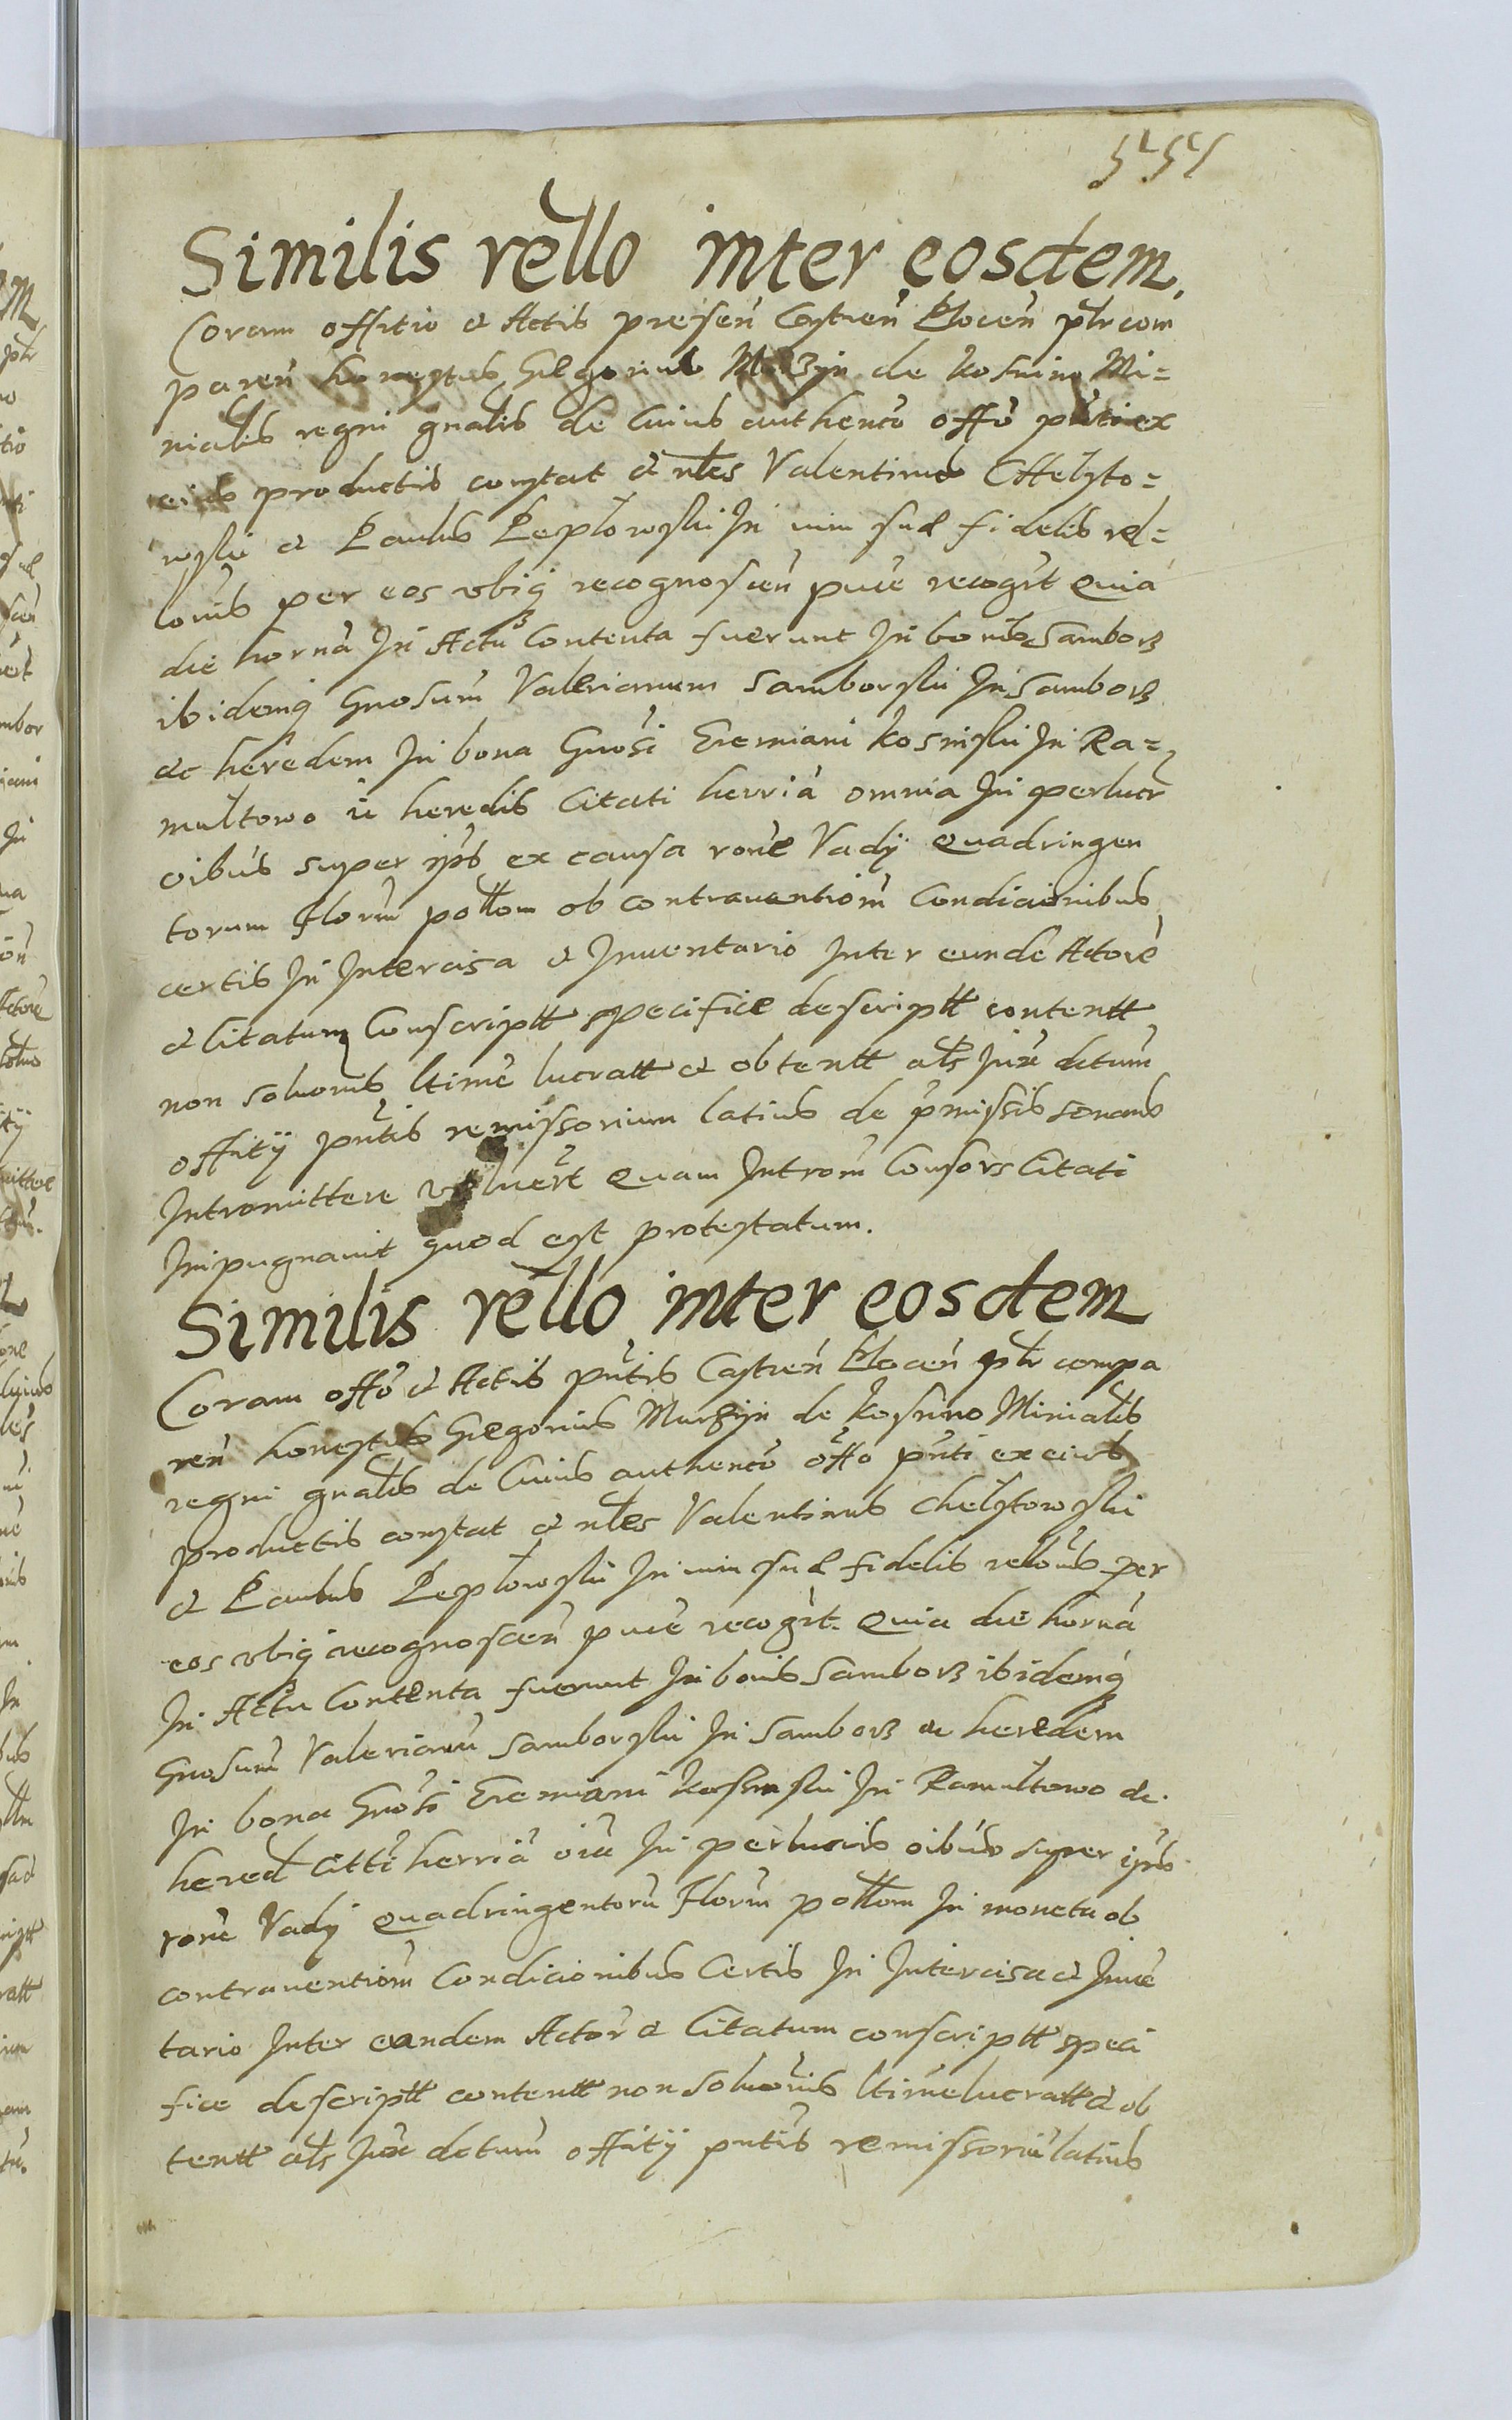 Similis rello inter eosdem
Coram offitio et Actis presen Castren Plocen pltr com
paren honestus Gregorius Murzyn de Kosnino Mi=
nialis regni gnalis de Cuius authenco offo pnti ex
eius productis constat et nles Valentinus Chelsto=
wski et Paulus Peplowski In vim sue fidelis rel=
lonis per eos ubiq recognoscen pure recogrt Quia
die horna In Actu Contenta fuerunt In bonis Samborz
ibidemq Gnosum Valerianum Samborski In Samborz
ac heredem In bona Gnosi Eremiani Kosniski In Ra=
multowo ic heredis Citati herria omnia In perlucr
oibus super ipis ex causa rone Vadij Quadringen
torum Florum pollom ob contrauentiom Condicionibus
certis In Intercisa et Inuentario Inter eunde Actore
et Citatum Conscriptt specifice descriptt contentt
non soluonis ltime lucratt et obtentt als Jux detum
offitij pntis remissorium latius de pmissis sonans
Intromittere voluert Quam Introm Consors Citati
Inpugnauit quod est protestatum.
Similis rello inter eosdem
Coram offo et Actis pntis Castren Plocen pltr compa
ren honestus Gregorius Murzyn de Kosnino Minialis
regni gnalis de Cuius authenco offo pnti ex eius
productis constat et nles Valentinus Chelstowski
et Paulus Peplowski In vim sue fidelis rellonis per
eos ubiq recognoscen pure recogrt. Quia die horna
In Actu Contenta fuerunt In bonis Samborz ibidemq
Gnosum Valerianu Samborski In Samborz ac heredem
In bona Gnosi Eremiani Kosniski In Ramultowo ac.
hered Citti herria oia In perlucris oibus super ipis
rone Vadij Quadringentoru Florum pollom In moneta ob
contrauentiom Condicionibus Certis In Intercisa et Inue
tario Inter eandem Actor et Citatum conscriptt speci
fice descriptt contentt non soluonis ltime lucratt et ob
tentt als Jux detum offitij pntis remissoriu latius